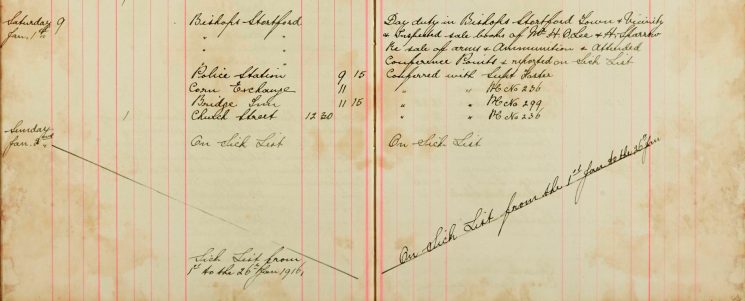 Saturday 9 Bishops Stortford Day duty in Bishops Stortford Town & Vicinity
Jan. 1st " " & Inspected sale books of Mr H. & H. Sparrow
" " Re sale of arms & Ammunition & Attended
" " Conference Points & reported on Sick List
Police Station 9 15 Conferred with Supt Foster
Corn Exchange 11 " " PC No 236
Bridge Inn 11 15 " " PC No 299
1 Church Street 12 30 " " PC No 236
Sunday
Jan. 2nd On Sick List On Sick List
On Sick List from the 1st Jan to the 26 Jan
Sick List from
1st to the 26th Jan 1916